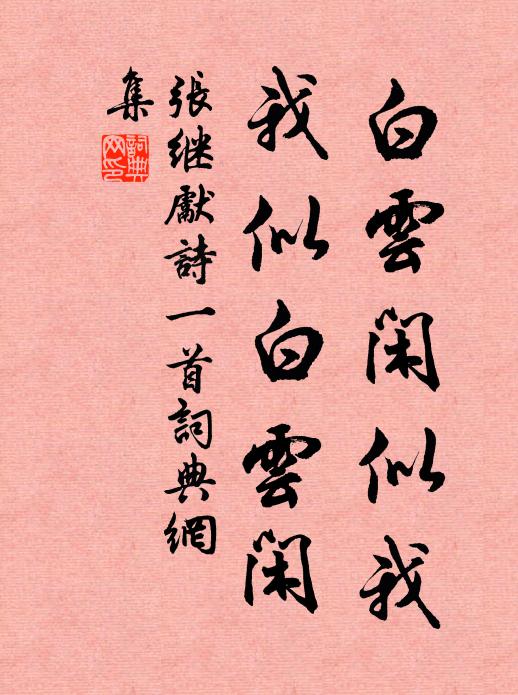 白雲閑似我
我似白雲閑
張继獻詩一首詞典網
集
詞典網印